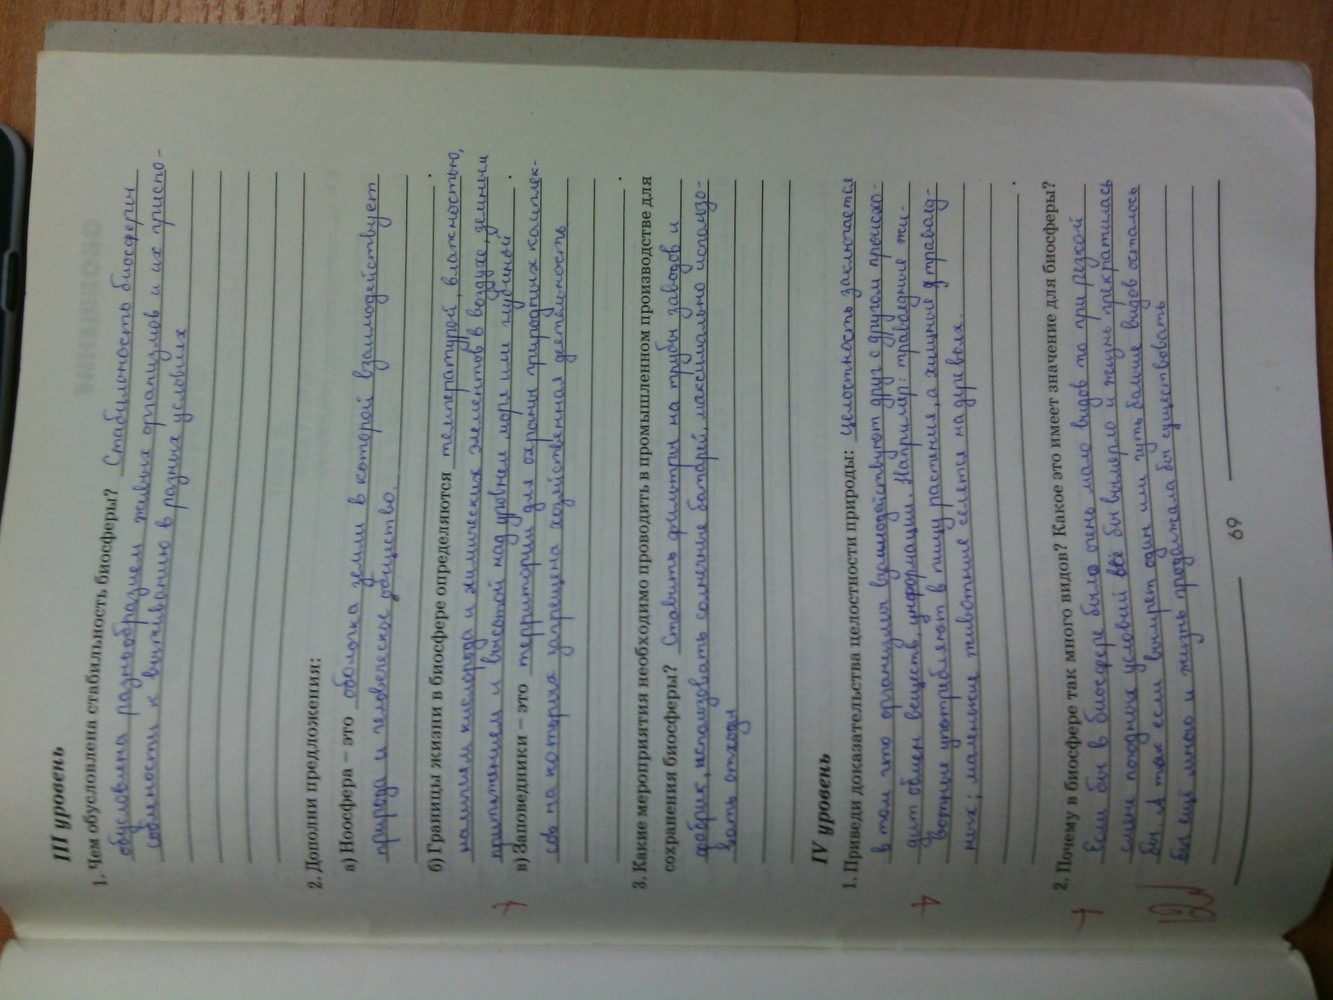 III уровень
1. Чем обусловлена стабильность биосферы? Стабильность биосферы
обусловлена разнообразием живых организмов и их приспо-
собленности к выживанию в разных условиях
2. Дополни предложения:
а) Ноосфера – это оболочка земли в которой взаимодействует
природа и человеческое общество.
б) Границы жизни в биосфере определяются температурой, влажностью,
наличием кислорода и химических элементов в воздухе, земным
притяжением и высотой над уровнем моря или глубиной.
в) Заповедники – это территории для охраны природных комплек-
сов на которых запрещена хозяйственная деятельность
3. Какие мероприятия необходимо проводить в промышленном производстве для
сохранения биосферы? Ставить фильтры на трубы заводов и
фабрик, использовать солнечные батареи, максимально использо-
вать отходы
IV уровень
1. Приведи доказательства целостности природы: целостность заключается
в том что организмы взаимодействуют друг с другом происхо-
дит обмен веществ, информации. Например: травоядные жи-
вотные употребляют в пищу растения, а хищные травояд-
ных; маленькие животные селятся на деревьях.
2. Почему в биосфере так много видов? Какое это имеет значение для биосферы?
Если бы в биосфере было очень мало видов то при резкой
смене погодных условий всё бы вымерло и жизнь прекратилась
бы. А так если вымрет один или чуть больше видов осталось
бы ещё много и жизнь продолжала бы существовать
69